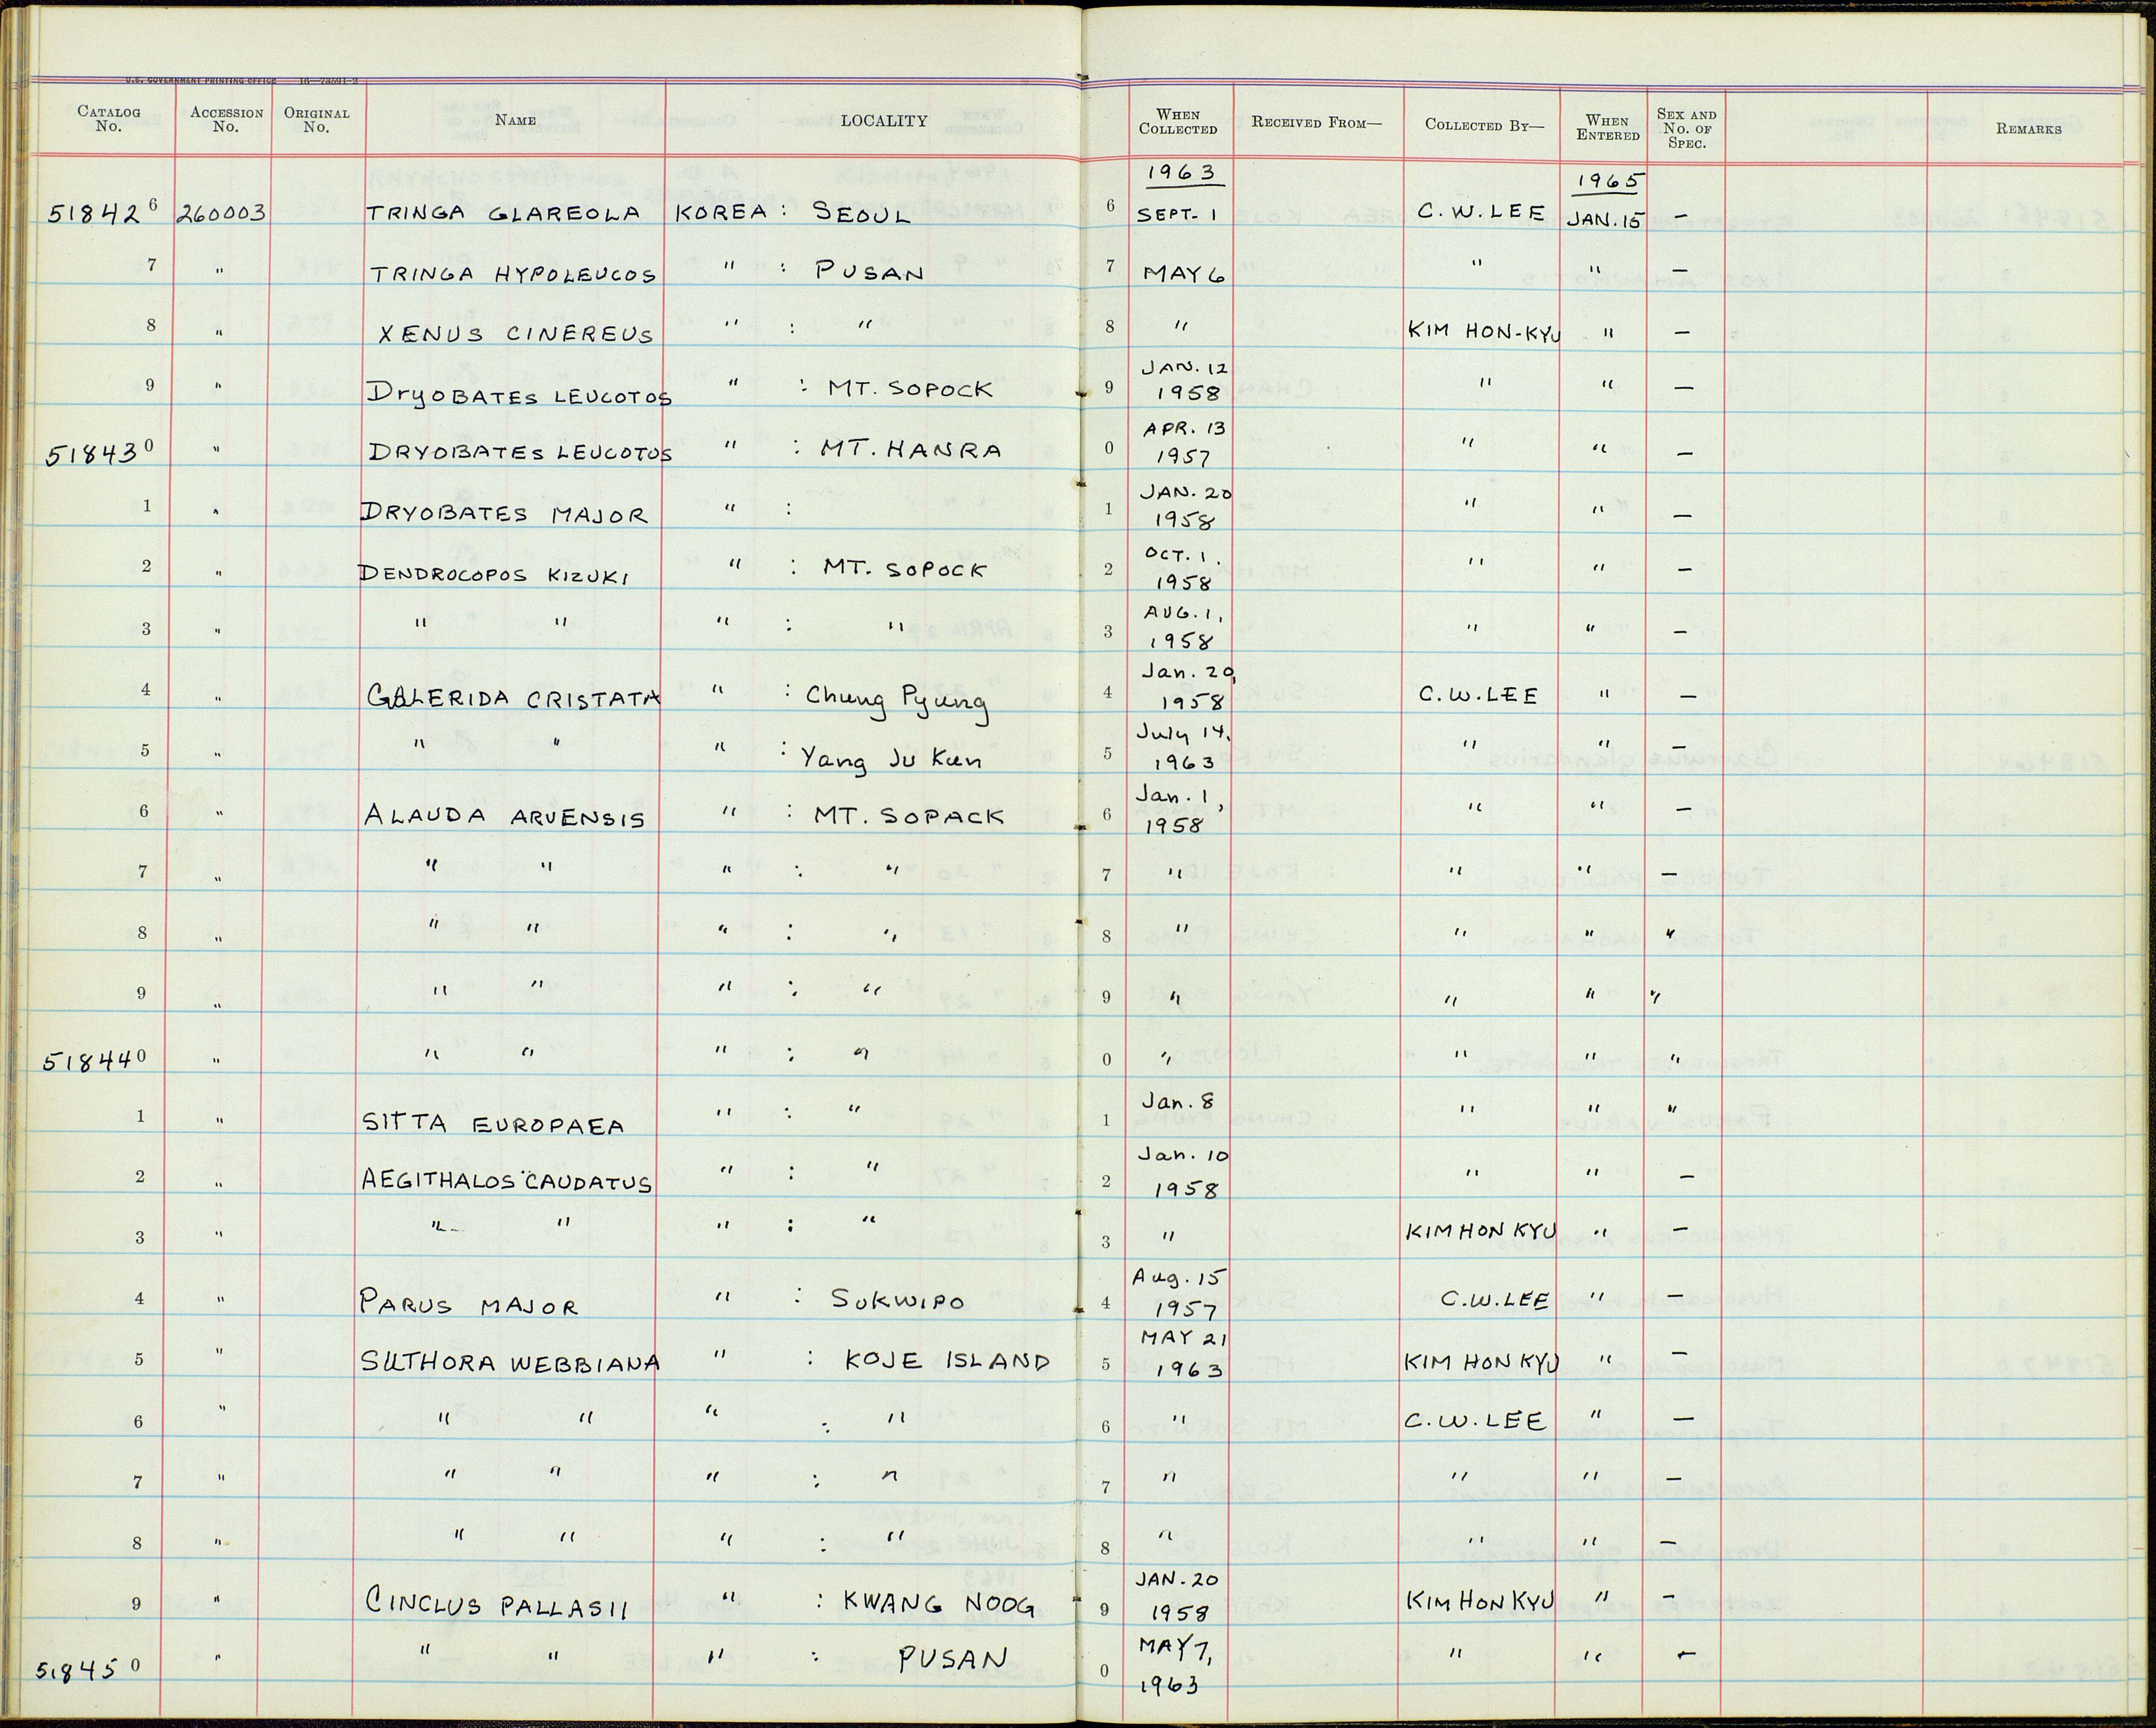 U.S. GOVERNMENT PRINTING OFFICE 16—74591-2
CATALOG No. ACCESSION No. ORIGINAL No. NAME LOCALITY WHEN COLLECTED RECEIVED FROM— COLLECTED BY— WHEN ENTERED SEX AND No. OF SPEC. REMARKS
1963 1965
518426 260003 TRINGA GLAREOLA KOREA : SEOUL 6 SEPT. 1 C. W. LEE JAN. 15 —
7 " TRINGA HYPOLEUCOS " : PUSAN 7 MAY 6 " " —
8 " XENUS CINEREUS " : " 8 " KIM HON-KYU " —
9 " DryOBATES LEUCOTOS " : MT. SOPOCK 9 JAN. 12 1958 " " —
518430 " DRYOBATES LEUCOTOS " : MT. HANRA 0 APR. 13 1957 " " —
1 " DRYOBATES MAJOR " : 1 JAN. 20 1958 " " —
2 " DENDROCOPOS KIZUKI " : MT. SOPOCK 2 OCT. 1, 1958 " " —
3 " " " " : " 3 AUG. 1, 1958 " " —
4 " GALERIDA CRISTATA " : Chung Pyung 4 Jan. 20, 1958 C. W. LEE " —
5 " " " " : Yang Ju Kun 5 July 14, 1963 " " —
6 " ALAUDA ARVENSIS " : MT. SOPACK 6 Jan. 1, 1958 " " —
7 " " " " : " 7 " " " —
8 " " " " : " 8 " " " "
9 " " " " : " 9 " " " "
518440 " " " " : " 0 " " " "
1 " SITTA EUROPAEA " : " 1 Jan. 8 " " "
2 " AEGITHALOS CAUDATUS " : " 2 Jan. 10 1958 " " —
3 " " " " : " 3 " KIM HON KYU " —
4 " PARUS MAJOR " : SUKWIPO 4 Aug. 15 1957 C. W. LEE " —
5 " SUTHORA WEBBIANA " : KOJE ISLAND 5 MAY 21 1963 KIM HON KYU " —
6 " " " " : " 6 " C. W. LEE " —
7 " " " " : " 7 " " " —
8 " " " " : " 8 " " " —
9 " CINCLUS PALLASII " : KWANG NOOG 9 JAN. 20 1958 KIM HON KYU " —
518450 " " " " : PUSAN 0 MAY 7, 1963 " " —